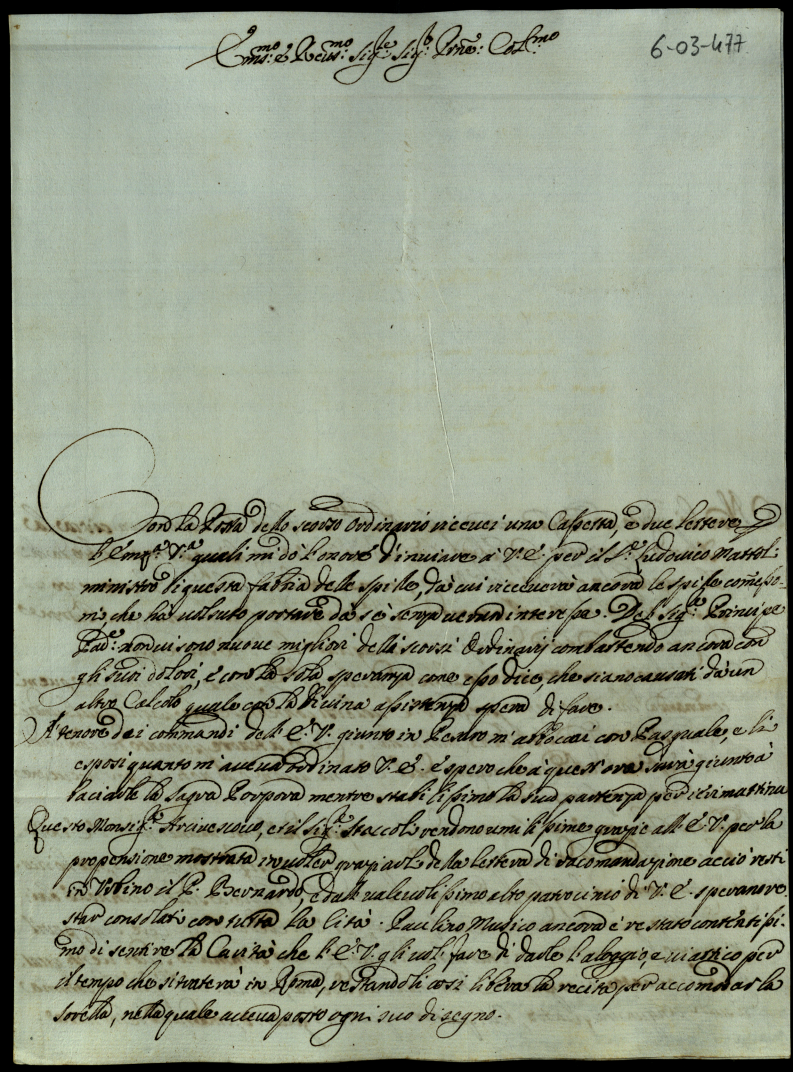 Em.mo e R.eu.mo Sig.re Sig.r P.rne: Col.mo
6-03-477
Con la Posta dello scorso Ordinario riceuei una Cassetta, e due lettere
l'Em.a V.a quali mi dò l'onore d'inuiare à V.E. per il S.r Ludouico Mattol:
ministro di questa fabria delle spille, dà cui riceuerà ancora le spille
mi, che hà uoluto portare da sè senza ueran interesse. Del Sig.r Principe
Pad: non ui sono nuoue migliori delli scorsi Ordinarij combattendo ancora con
gli suoi dolori, e con la sola speranza come esso dice, che siano causati dà un
altro Calcolo quale con la Diuina assistenza spera di fare.
A tenore dei commandi dell'E.V. giunto in Pesaro m'abboccai con Pasquale, e li
esposi quanto m'aueua ordinato V.E. e spero che à quest'ora sarà giunto à
baciarle la Sagra Porpora mentre stabilissimo la sua partenza per ieri mattina
Questo Monsig.r Arciuescouo, et il Sig.r Staccoli rendono umilissime grazie all'E.V. per la
propensione mostrata in uoler graziarli della lettera di racomandazione acciò resti
in Urbino il P. Bernardo, e dall ualeuolissimo alto patrocinio di V.E. sperano re-
star consolati con tutta la Città. Paulino Musico ancora è restato contentissi-
mo di sentire la Carità che l'E.V. gli uol fare di darle l'aloggio, e uiattico per
il tempo che si tratterà in Roma, restandoli cosi libera la recita per accomodar la
sorella, nella quale aueua posto ogni suo disegno.